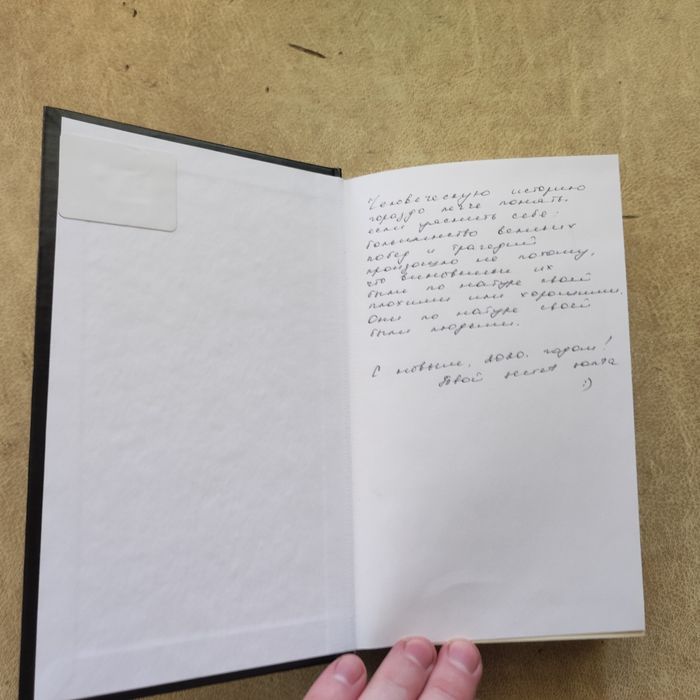 Человеческую историю
гораздо легче понять,
если уяснить себе:
большинство великих
побед и трагедий
произошло не потому,
что виновники их
были по натуре своей
плохими или хорошими.
Они по натуре своей
были людьми.
С новым, 2020. годом!
Твой
:)